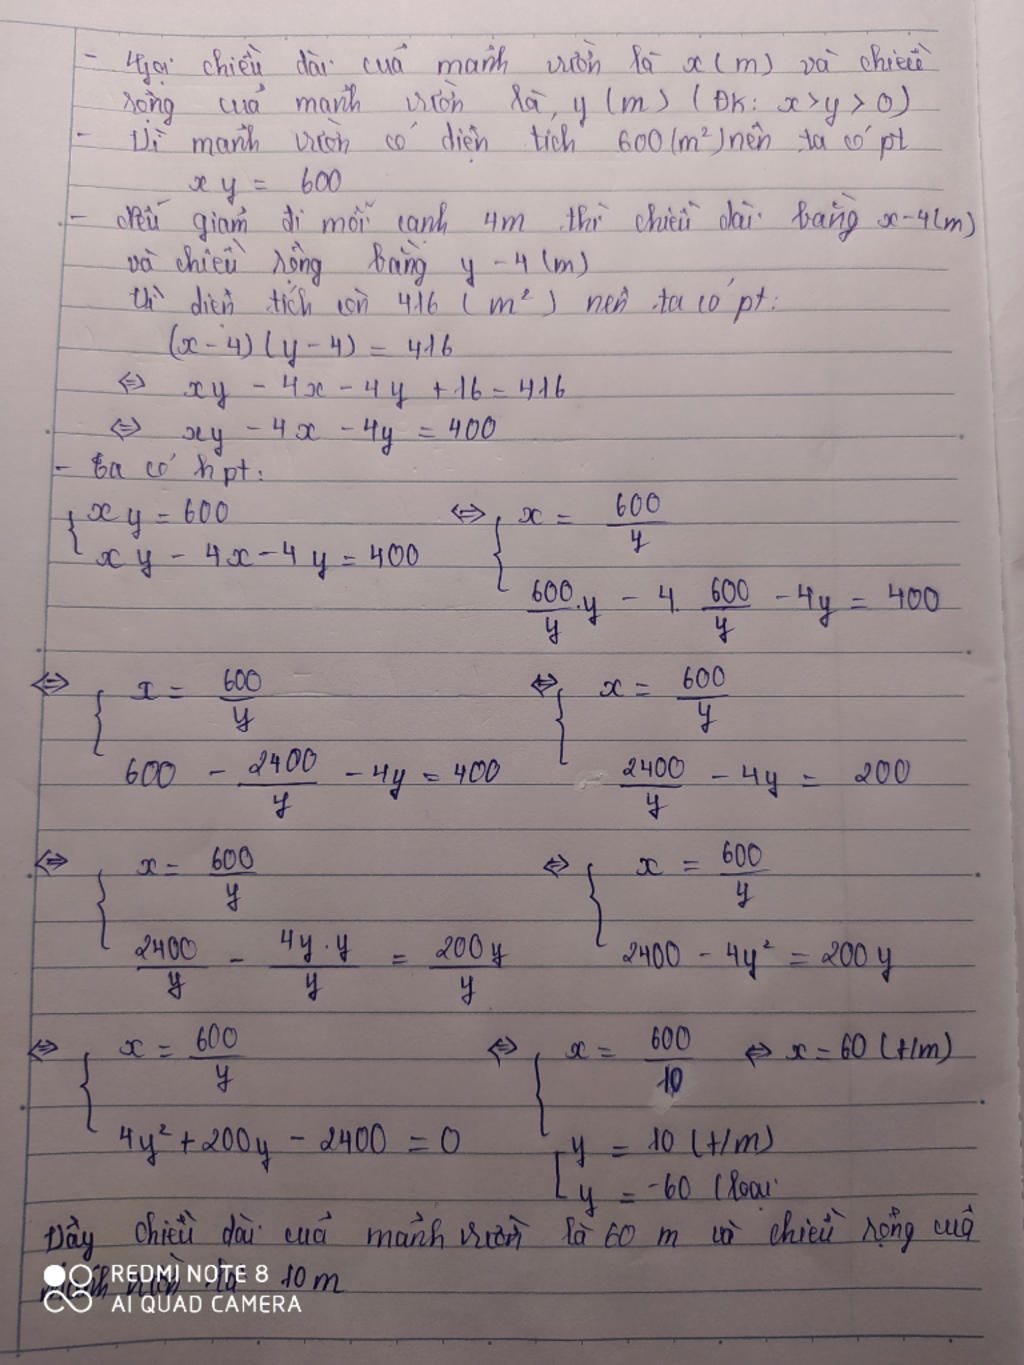 - Gọi chiều dài của mảnh vườn là x (m) và chiều
rộng của mảnh vườn là, y (m) (ĐK: x > y > 0)
- Vì mảnh vườn có diện tích 600 (m²) nên ta có pt
xy = 600
- Nếu giảm đi mỗi cạnh 4m thì chiều dài bằng x-4(m)
và chiều rộng bằng y - 4 (m)
thì diện tích còn 416 (m²) nên ta có pt:
(x - 4) (y - 4) = 416
⇔ xy - 4x - 4y + 16 = 416
⇔ xy - 4x - 4y = 400
- Ta có hpt:
{ xy = 600 ⇔ { x = 600/y
xy - 4x - 4y = 400
600/y . y - 4. 600/y - 4y = 400
⇔ { x = 600/y ⇔ { x = 600/y
600 - 2400/y - 4y = 400 2400/y - 4y = 200
⇔ { x = 600/y ⇔ { x = 600/y
2400/y - 4y.y/y = 200y/y 2400 - 4y² = 200y
⇔ { x = 600/y ⇔ { x = 600/10 ⇔ x = 60 (t/m)
4y² + 200y - 2400 = 0 [ y = 10 (t/m)
y = -60 (loại
Vậy chiều dài của mảnh vườn là 60 m và chiều rộng của
mảnh vườn là 10 m
REDMI NOTE 8
AI QUAD CAMERA